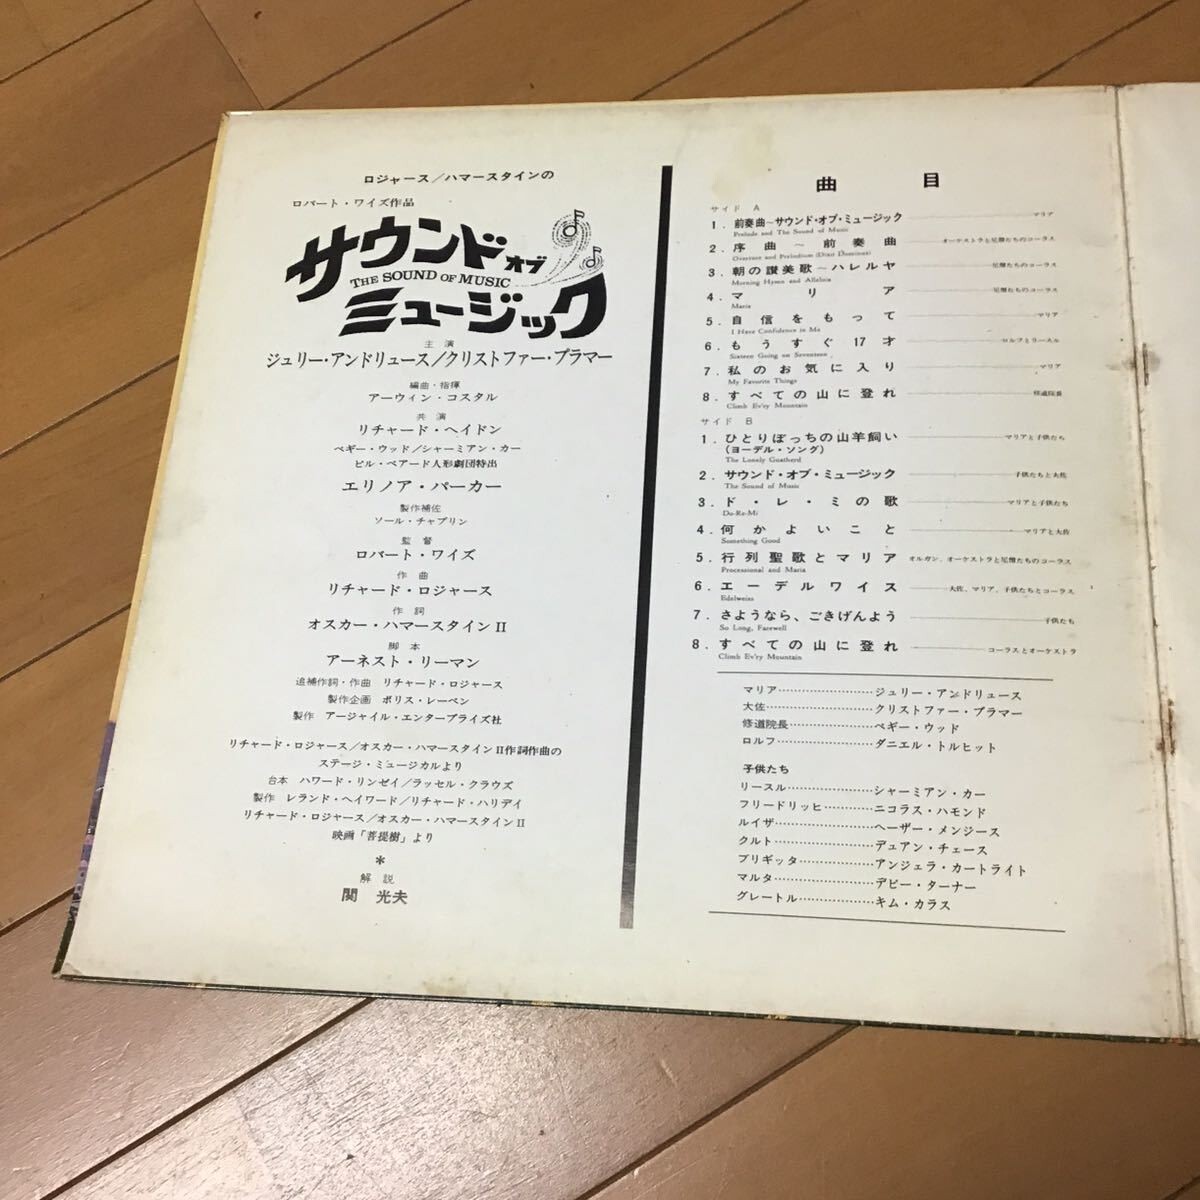 ロジャース／ハマースタインの
ロバート・ワイズ作品
サウンド オブ
THE SOUND OF MUSIC
ミュージック
主演
ジュリー・アンドリュース／クリストファー・プラマー
編曲・指揮
アーウィン・コスタル
共演
リチャード・ヘイドン
ペギー・ウッド／シャーミアン・カー
ビル・ベアード人形劇団特出
エリノア・パーカー
製作補佐
ソール・チャプリン
監督
ロバート・ワイズ
作曲
リチャード・ロジャース
作詞
オスカー・ハマースタインII
脚本
アーネスト・リーマン
追補作詞・作曲 リチャード・ロジャース
製作企画 ボリス・レーベン
製作 アージャイル・エンタープライズ社
リチャード・ロジャース／オスカー・ハマースタインII作詞作曲の
ステージ・ミュージカルより
台本 ハワード・リンゼイ／ラッセル・クラウズ
製作 レランド・ヘイワード／リチャード・ハリデイ
リチャード・ロジャース／オスカー・ハマースタインII
映画「菩提樹」より
＊
解説
関 光夫
曲目
サイド A
1．前奏曲～サウンド・オブ・ミュージック マリア
Prelude and The Sound of Music
2．序曲～前奏曲 オーケストラと尼僧たちのコーラス
Overture and Preludium (Dixit Dominus)
3．朝の讃美歌～ハレルヤ 尼僧たちのコーラス
Morning Hymn and Alleluia
4．マリア 尼僧たちのコーラス
Maria
5．自信をもって マリア
I Have Confidence in Me
6．もうすぐ17才 ロルフとリースル
Sixteen Going on Seventeen
7．私のお気に入り マリア
My Favorite Things
8．すべての山に登れ 修道院長
Climb Ev'ry Mountain
サイド B
1．ひとりぼっちの山羊飼い マリアと子供たち
（ヨーデル・ソング）
The Lonely Goatherd
2．サウンド・オブ・ミュージック 子供たちと大佐
The Sound of Music
3．ド・レ・ミの歌 マリアと子供たち
Do-Re-Mi
4．何かよいこと マリアと大佐
Something Good
5．行列聖歌とマリア オルガン、オーケストラと尼僧たちのコーラス
Processional and Maria
6．エーデルワイス 大佐、マリア、子供たちとコーラス
Edelweiss
7．さようなら、ごきげんよう 子供たち
So Long, Farewell
8．すべての山に登れ コーラスとオーケストラ
Climb Ev'ry Mountain
マリア……………………ジュリー・アンドリュース
大佐……………………クリストファー・プラマー
修道院長……………………ペギー・ウッド
ロルフ……………………ダニエル・トルヒット
子供たち
リースル……………………シャーミアン・カー
フリードリッヒ……………………ニコラス・ハモンド
ルイザ……………………ヘーザー・メンジース
クルト……………………デュアン・チェース
ブリギッタ……………………アンジェラ・カートライト
マルタ……………………デビー・ターナー
グレートル……………………キム・カラス